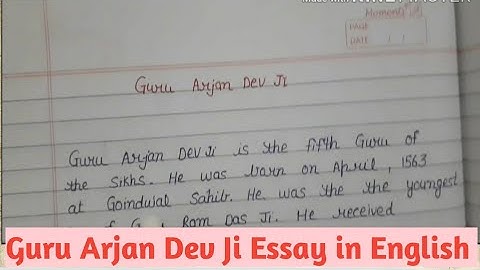 Made with
Moments
PAGE
DATE / /
Guru Arjan Dev Ji
Guru Arjan Dev Ji is the fifth Guru of
the Sikhs. He was born on April, 1563
at Goindwal Sahib. He was the the youngest
Ram Das Ji. He received
Guru Arjan Dev Ji Essay in English